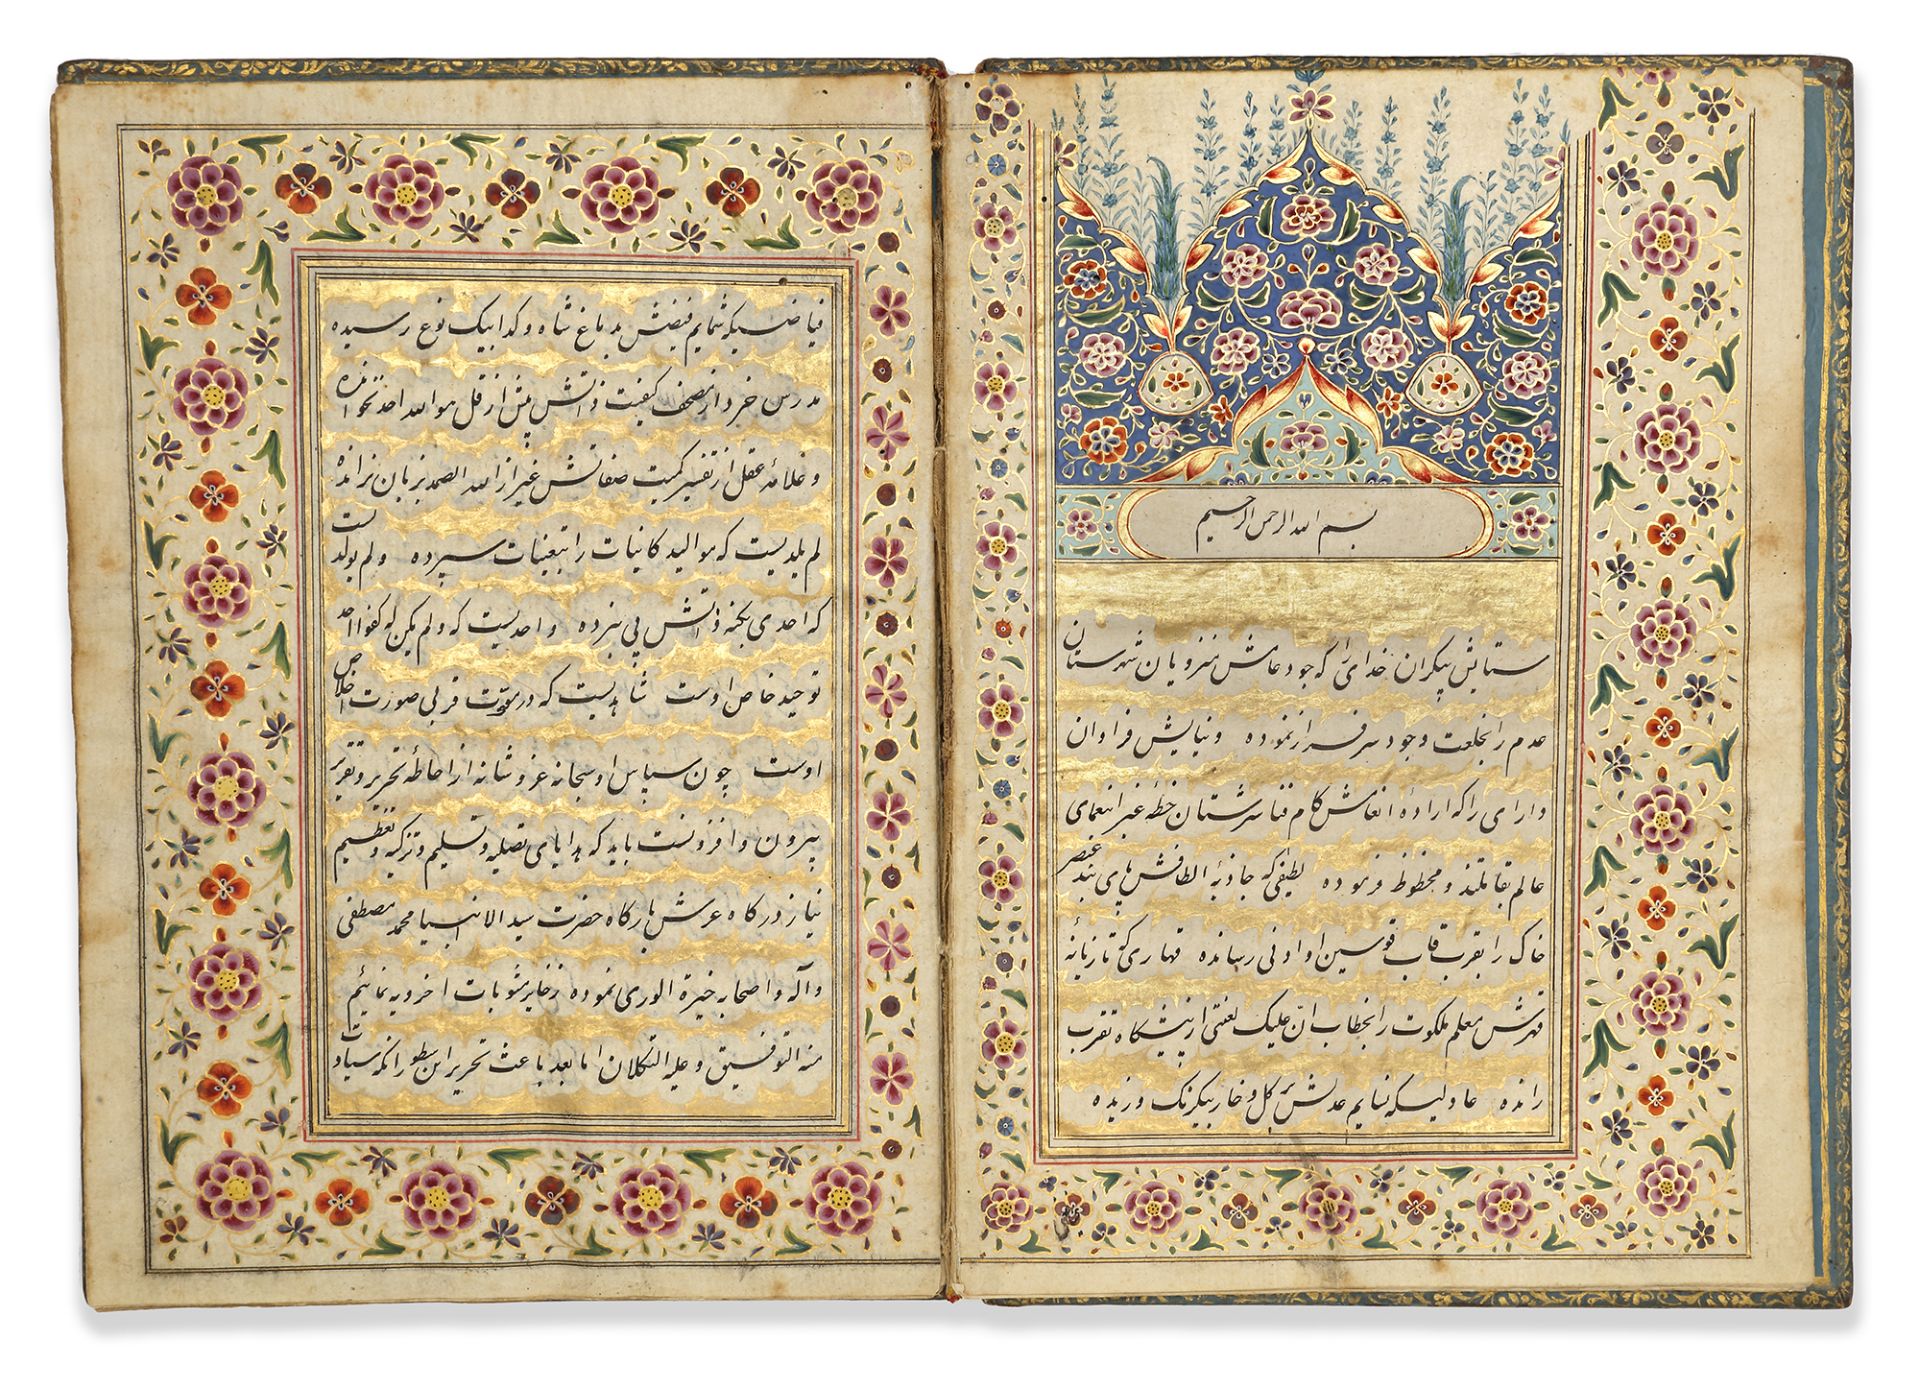 بسم الله الرحمن الرحیم
ستایش بیکران خدای را که جود عامش منزویان شهرستان
عدم را بخلعت وجود سرفراز نموده و نیایش فراوان
دارای را که اراده انعامش کام فناسرشتان خطه غبرا بنعمای
عالم بقا متلذذ و محظوظ فرموده لطیفی که جاذبه الطافش پای بند عنصر
خاک را بقرب قاب قوسین او ادنی رسانده قهاری که تازیانه
قهرش معلم ملکوت را بخطاب ان علیک لعنتی از پیشگاه تقرب
رانده عادلیکه نسایم عدلش بر گل و خار بیکرنگ وزیده
فیاضیکه شمایم فیضش بدماغ شاه و گدا بیک نوع رسیده
مدرس خرد از مصحف کیفیت ذاتش بیش از قل هو الله احد نخوانده
و علامه عقل از تفسیر کمیت صفاتش غیر از الله الصمد بزبان نرانده
لم یلدیست که موالید کاینات را بتعینات سپرده و لم یولدیست
که احدی بکنه ذاتش پی نبرده واحدیست که و لم یکن له کفوا احد
توحید خاص اوست شاهدیست که در قربی صورت اخلاص
اوست چون سپاس او سبحانه عز و شانه از احاطه تحریر و تقریر
بیرون و افزونست باید که هدایای تصلیه و تسلیم و تزکیه و تعظیم
نیاز درگاه عرش بارگاه حضرت سید الانبیا محمد مصطفی
و آله و اصحابه خیرة الوری نموده ذخایر مثوبات اخرویه نمائیم
منه التوفیق و علیه التکلان اما بعد باعث تحریر این سطور آنکه سیادت